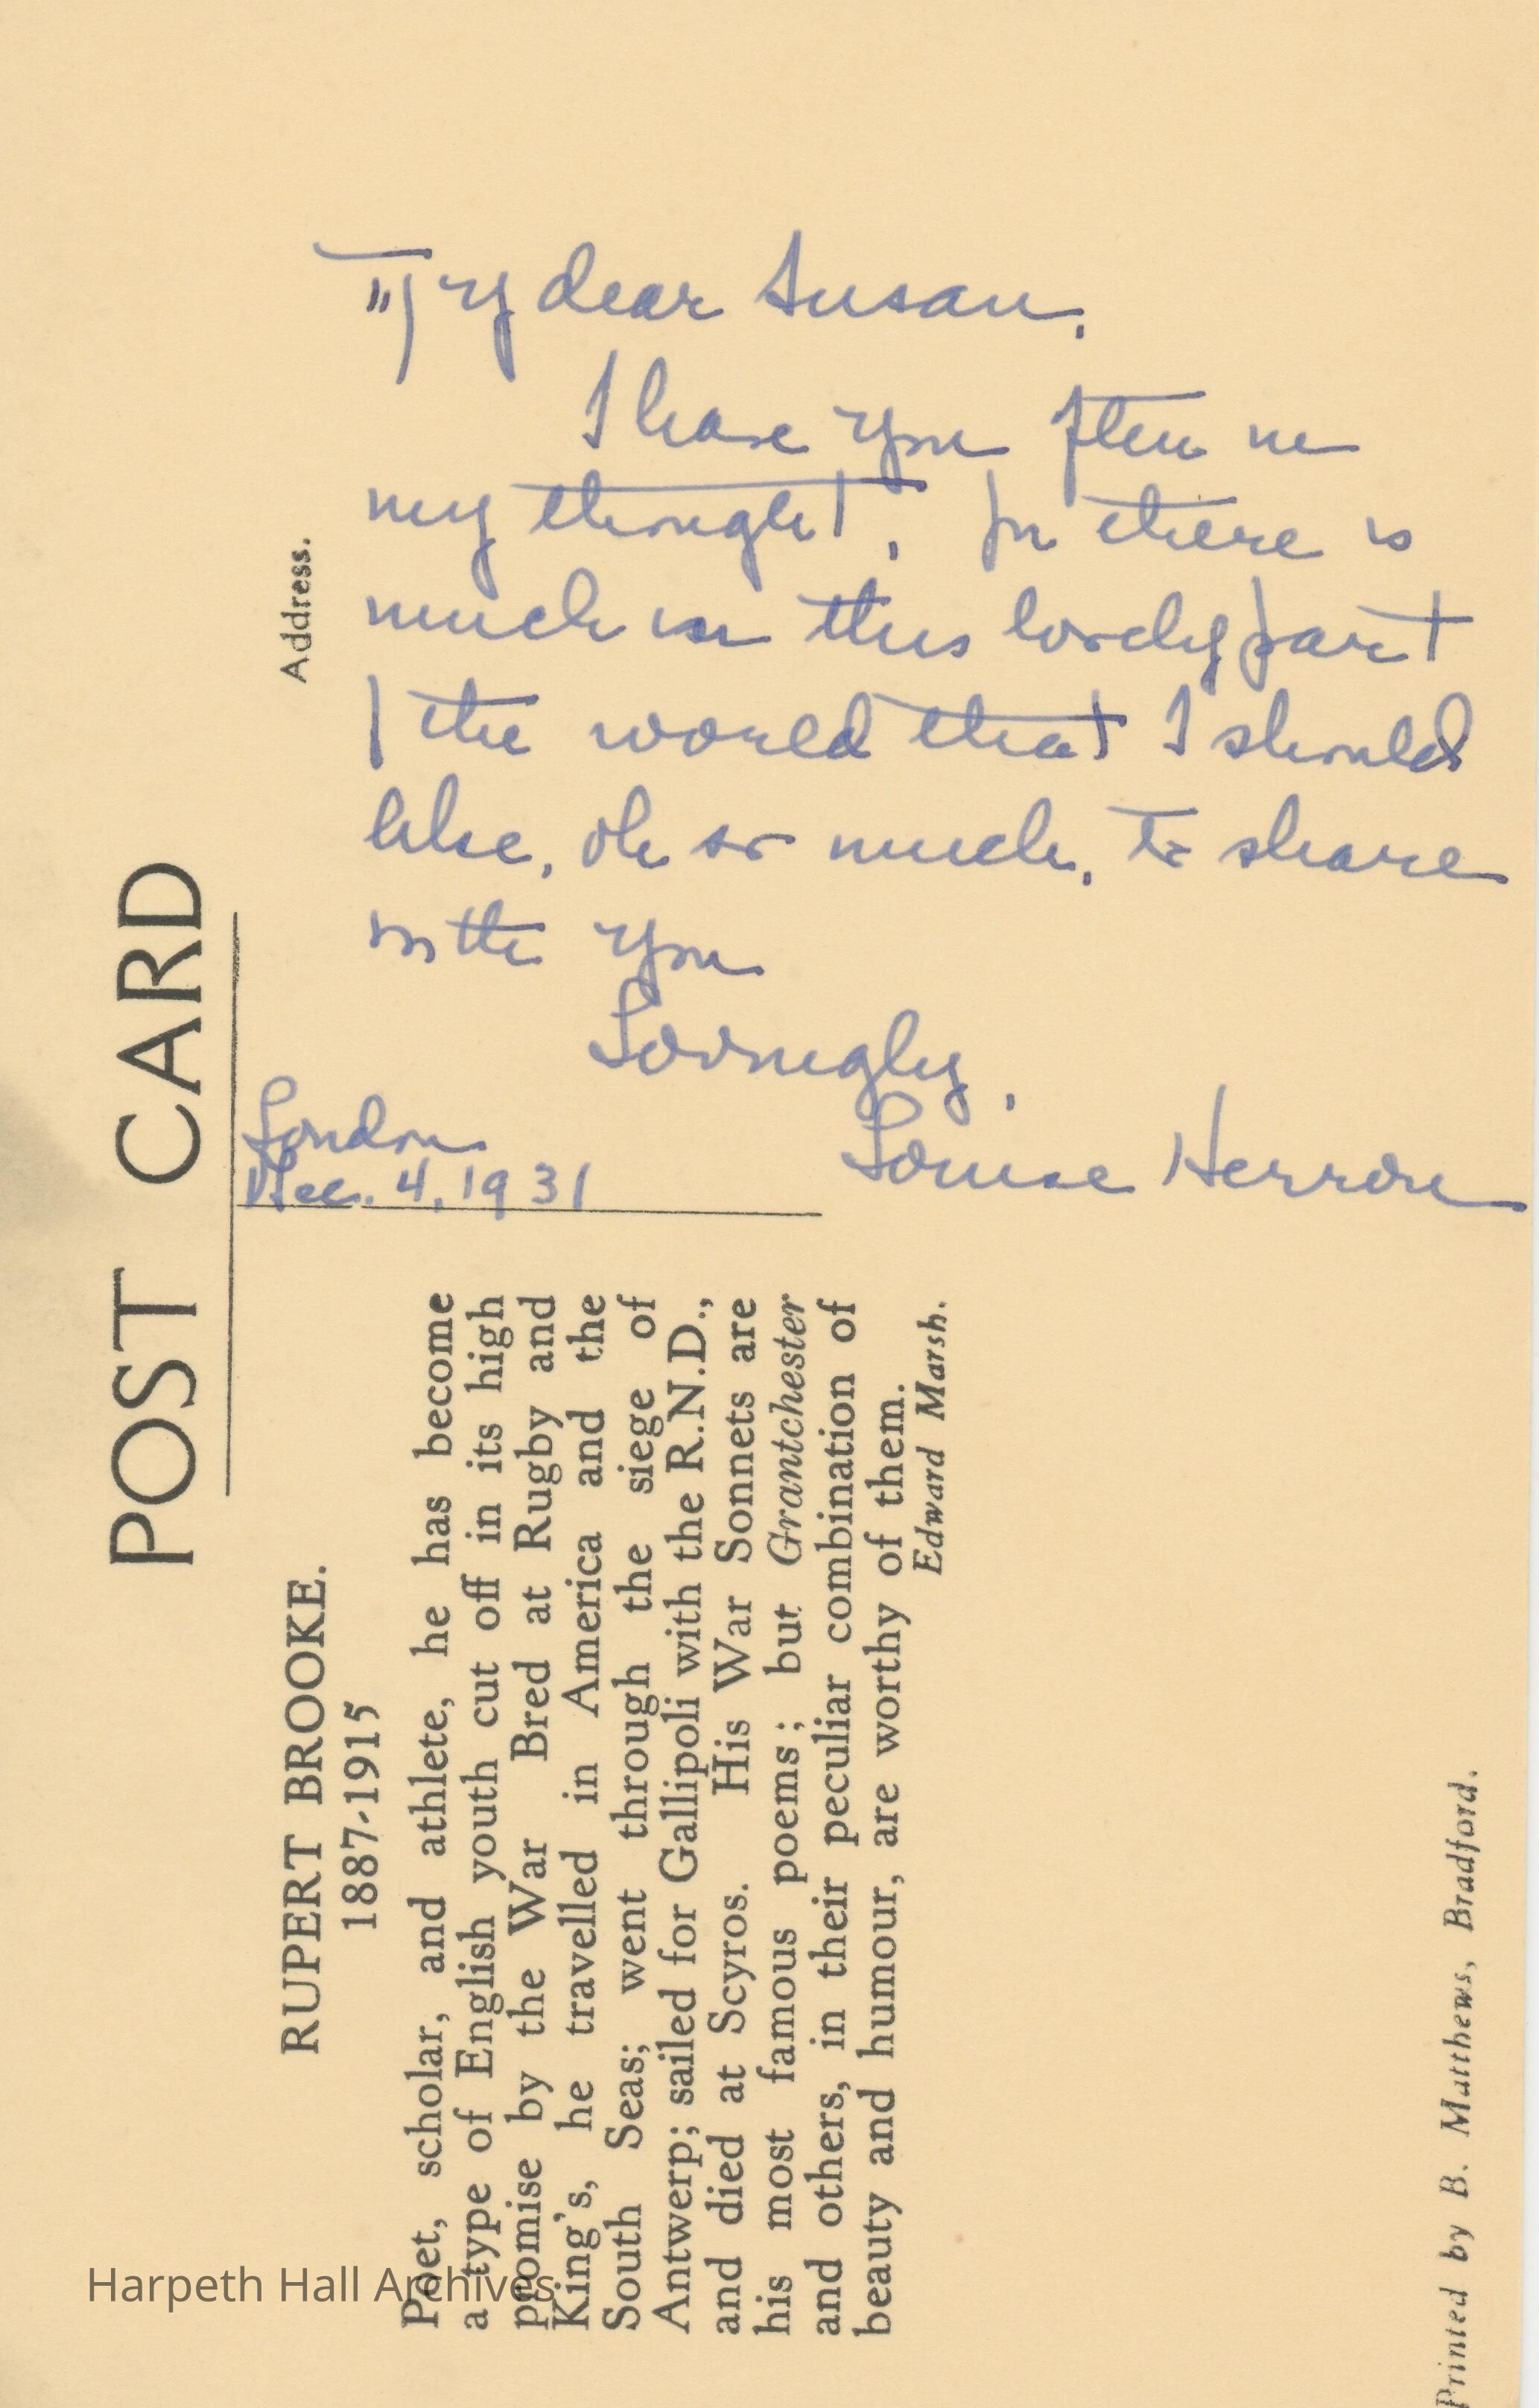 POST CARD
Address.
My dear Susan,
I have you often in
my thought, for there is
much in this lovely part
of the world that I should
like, oh so much, to share
with you
Lovingly,
Louise Herron
London
Dec. 4, 1931
RUPERT BROOKE.
1887-1915
Poet, scholar, and athlete, he has become
a type of English youth cut off in its high
promise by the War Bred at Rugby and
King's, he travelled in America and the
South Seas; went through the siege of
Antwerp; sailed for Gallipoli with the R.N.D.,
and died at Scyros. His War Sonnets are
his most famous poems; but Grantchester
and others, in their peculiar combination of
beauty and humour, are worthy of them.
Edward Marsh.
Printed by B. Matthews, Bradford.
Harpeth Hall Archives